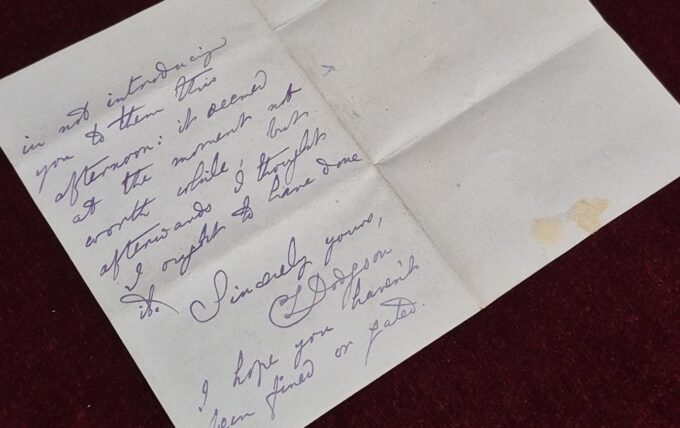 in not introducing
you to them this
afternoon: it seemed
at the moment not
worth while, but
afterwards I thought
I ought to have done
it.
Sincerely yours,
CL Dodgson
I hope you haven't
been fined or gated.